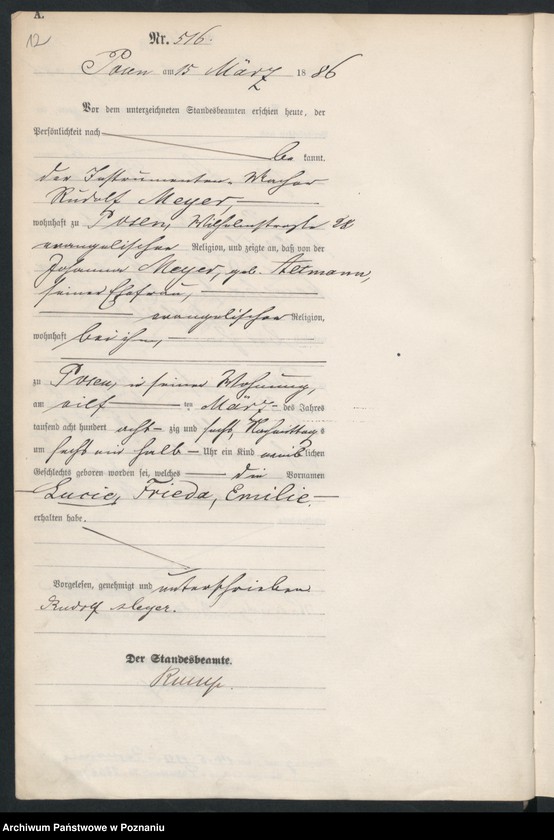 A.
12
Nr. 516.
Posen am 15 März 1886
Vor dem unterzeichneten Standesbeamten erschien heute, der
Persönlichkeit nach
be kannt.
der Instrumenten-Macher
Rudolf Meyer,
wohnhaft zu Posen, Wilhelmstraße
evangelischer Religion, und zeigte an, daß von der
Johanna Meyer, geb. Altmann,
seiner Ehefrau,
evangelischer Religion,
wohnhaft bei ihm,
zu Posen, in seiner Wohnung,
am eilf ten März des Jahres
tausend acht hundert acht- zig und sechs, Nachmittags
um sechs ein halb Uhr ein Kind weiblichen
Geschlechts geboren worden sei, welches die Vornamen
Lucie, Frieda, Emilie
erhalten habe.
Vorgelesen, genehmigt und unterschrieben
Rudolf Meyer.
Der Standesbeamte.
Archiwum Państwowe w Poznaniu